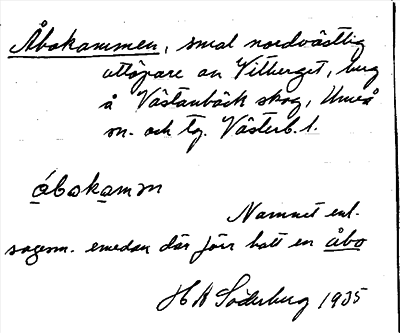 Åbokammen, smal nordvästlig
utlöpare av Vitberget, berg
å Västanbäck skog, Umeå
sn. och tg. Västerb. l.
åbokamm
Namnet enl.
sagesm. emedan där förr bott en åbo
H A Söderberg 1935